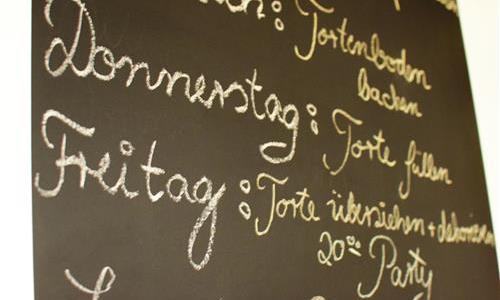 Tortenboden
backen
Donnerstag: Torte füllen
Freitag: Torte überziehen + dekorieren
20⁰⁰ Party